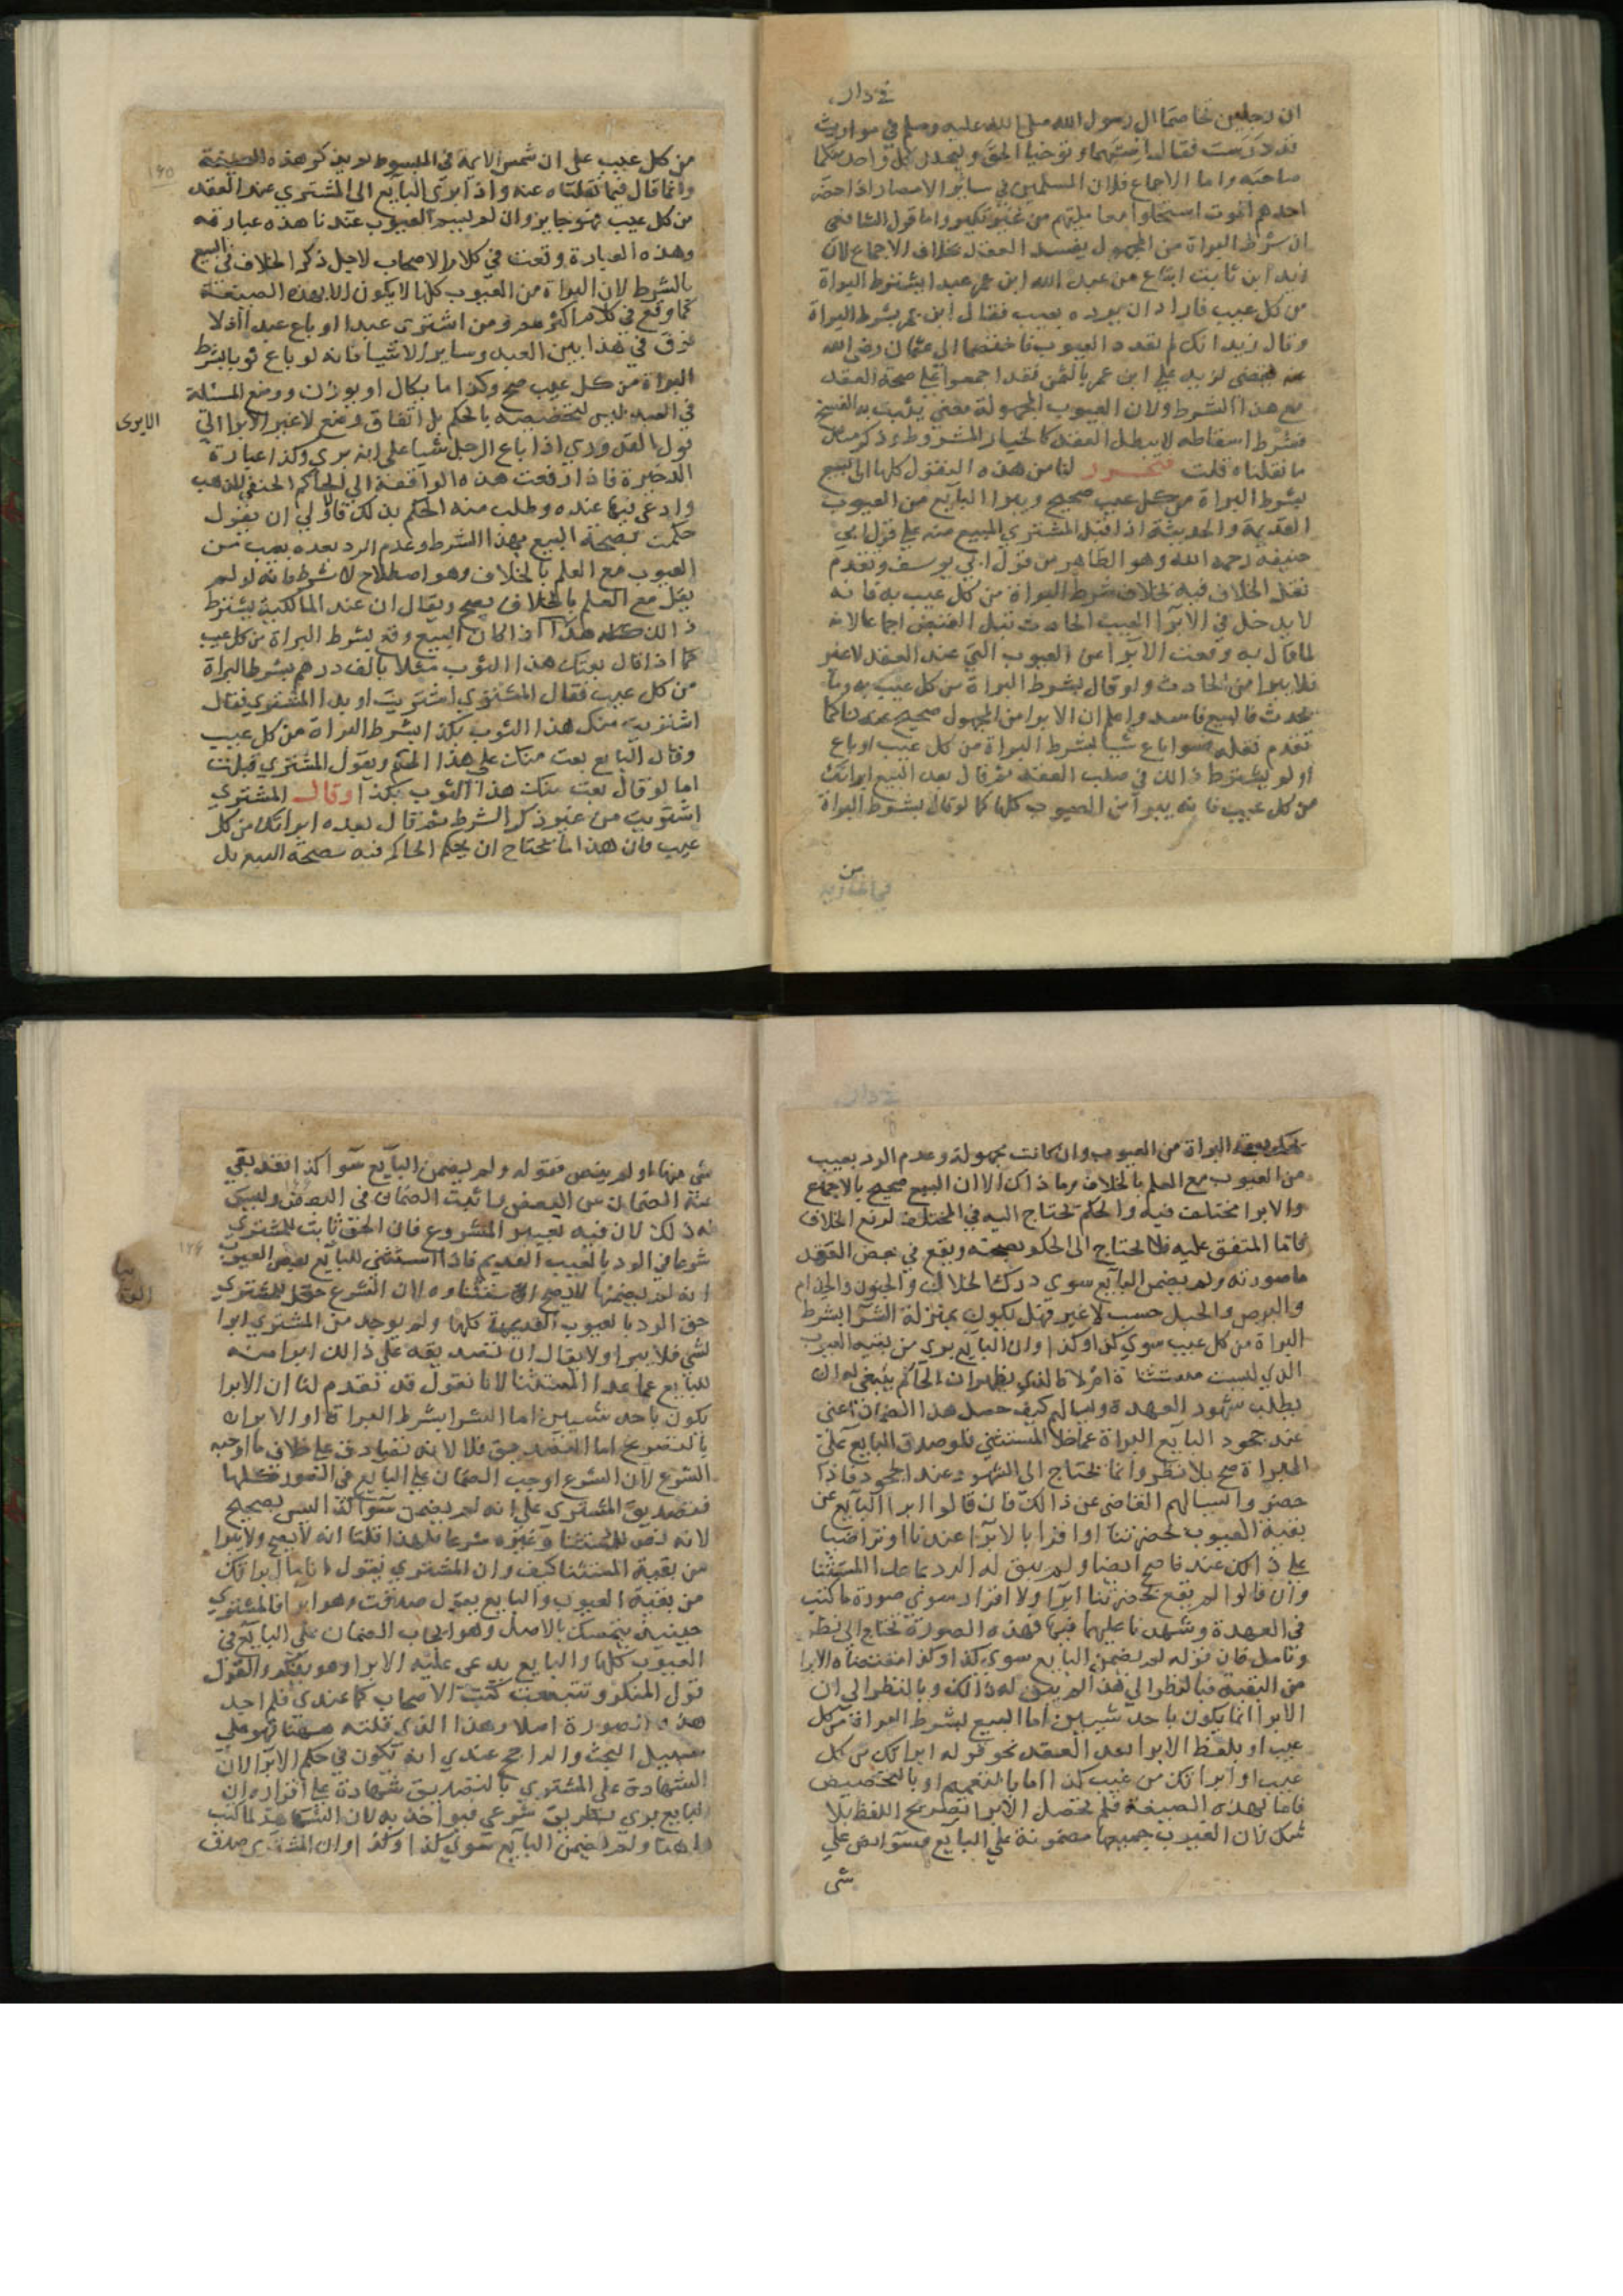 في دار
ان رجلين تخاصما الي رسول الله صلى الله عليه وسلم في مواريث
قد درست فقال استهما وتوخيا الحق وليحلل كل واحد منكما
صاحبه واما الاجماع فلان المسلمين في ساير الامصار اذا حضر
احدهم الموت استحلوا معامليهم من غير نكير واما قول الشافعي
ان شرط البراة من المجهول يفسد العقد بخلاف الاجماع لان
زيد ابن ثابت ابتاع من عبد الله ابن عمر عبدا بشرط البراة
من كل عيب فاراد ان يرده بعيب فقال ابن عمر بشرط البراة
وقال زيد انك لم تعدد العيوب فاختصما الى عثمان رضي الله
عنه فقضى لزيد علي ابن عمر بالثمن فقد اجمعوا علي صحة العقد
مع هذا الشرط ولان العيوب المجهولة معني يثبت به الفسخ
فشرط اسقاطه لا يبطل العقد كالخيار المشروط وذكر مثل
ما نقلناه قلت فتحرر لنا من هذه النقول كلها ان البيع
بشرط البراة من كل عيب صحيح ويبرا البايع من العيوب
القديمة والحديثة اذا قبل المشتري المبيع منه علي قول ابي
حنيفه رحمه الله وهو الظاهر من قول ابي يوسف وتقدم
نقل الخلاف فيه بخلاف شرط البراة من كل عيب به فانه
لا يدخل في الابرا العيب الحادث قبل القبض اجماعا لانه
لما قال به وقعت الابرا عن العيوب التي عند العقد لا غير
فلا يبرا من الحادث ولو قال بشرط البراة من كل عيب به وما
يحدث فالبيع فاسد واعلم ان الابرا من المجهول صحيح عندنا كما
تقدم نقله فسوا باع شيا بشرط البراة من كل عيب او باع
او لو يشترط ذالك في صلب العقد ثم قال بعد البيع ابراتك
من كل عيب فانه يبرا من العيوب كلها كما لو قال بشرط البراة
من
من كل عيب على ان شمس الايمة في المبسوط لم يذكر هذه الصيغة
وانما قال فيما نقلناه عنه واذا ابرى البايع الى المشتري عند العقد
من كل عيب فهو جايز وان لم يسم العيوب عندنا هذه عبارته
وهذه العبارة وقعت في كلام الاصحاب لاجل ذكر الخلاف في البيع
بالشرط لان البراة من العيوب كلها لا يكون الا بهذه الصيغة
كما وقع في كلام اكثرهم ومن اشترى عبدا او باع عبدا اذ لا
فرق في هذا بين العبد وساير الاشيا فانه لو باع ثوبا بشرط
البراة من كل عيب صح وكذا ما يكال او يوزن ووضع المسئلة
في العبد ليس لتخصيصه بالحكم بل اتفاق وضع لا غير الا برا الي
الا يرى
قول القدوري اذا باع الرجل شيا على انه بري وكذا عبارة
الدخيرة فاذا رفعت هذه الواقعة الى الحاكم الحنفي المذهب
وادعى فيها عنده وطلب منه الحكم بذلك فالاولي ان يقول
حكمت بصحة البيع بهذا الشرط وعدم الرد بعده بعيب من
العيوب مع العلم بالخلاف وهو اصطلاح لا شرط فانه لو لم
يقل مع العلم بالخلاف يصح ويقال ان عند المالكية يشترط
ذالك هذا اذا كان البيع وقع بشرط البراة من كل عيب
كما اذا قال بعتك هذا الثوب مثلا بالف درهم بشرط البراة
من كل عيب فقال المشتري اشتريت او بدا المشتري فقال
اشتريت منك هذا الثوب بكذا بشرط البراة من كل عيب
وقال البايع بعت منك على هذا الحكم ويقول المشتري قبلت
اما لو قال بعت منك هذا الثوب بكذا وقال المشتري
اشتريت من غير ذكر الشرط ثم قال بعده ابراتك من كل
عيب فان هذا ما يحتاج ان يحكم الحاكم فيه بصحة البيع بل
البراة من العيوب وان كانت مجهولة وعدم الرد بعيب
من العيوب مع العلم بالخلاف وما ذاك الا ان البيع صحيح بالاجماع
والابرا مختلف فيه والحكم يحتاج اليه في المختلف لرفع الخلاف
فاما المتفق عليه فلا يحتاج الى الحكم بصحته ويقع في بعض العهد
ما صورته ولم يضمن البايع سوي درك الحلال والجنون والجذام
والبرص والحبل حسب لا غير فهل يكون بمنزلة الشرا بشرط
البراة من كل عيب سوي كذا وكذا وان البايع بري من بقية العيوب
الذي ليست مستثناة ام لا فالذي يظهر ان الحاكم ينبغي له ان
يطلب شهود العهدة ويسالهم كيف حصل هذا الضمان اعني
عند جحود البايع البراة عما خلا المستثني فلو صدق البايع علي
البراة صح بلا نظر وانما يحتاج الى الشهود عند الجحود فاذا
حضروا يسالهم القاضي عن ذالك فان قالوا ابرا البايع عن
بقية العيوب بحضرتنا او اقرا بالابرا عندنا او تراضيا
علي ذالك عند فاصح ايضا ولم يبق له الرد بما عدا المستثنا
وان قالوا لم يقع بحضرتنا ابرا ولا اقرار سوي صورة ما كتب
في العهدة وشهدنا عليهما فيها فهذه الصورة تحتاج الى نظر
وتامل فان قوله لم يضمن البايع سوي كذا وكذا مقتضاه الابرا
من البقية فبالنظر الى هذا لم يبق له ذالك وبالنظر الى ان
الابرا انما يكون باحد شيين اما البيع بشرط البراة من كل
عيب او بلفظ الابرا بعد العقد نحو قوله ابراتك من كل
عيب او ابراتك من عيب كذا اما بالتعميم او بالتخصيص
فاما بهذه الصيغة فلم يحصل الابرا بصريح اللفظ بلا
شك لان العيوب جميعها مضمونة علي البايع فسوا نص علي
شي
شي منها او لم ينص فقوله ولم يضمن البايع سوا كذا فقد بقي
منه الضمان من البعض واثبت الضمان في البعض وليس
له ذلك لان فيه تغيير المشروع فان الحق ثابت للمشتري
شرعا في الرد بالعيب القديم فاذا استثنى البايع بعض العيوب
انه لم يضمنها لا يصح استثناوه لان الشرع جعل للمشتري
حق الرد بالعيوب القديمة كلها ولم يوجد من المشتري ابرا
لشي فلا يبرا ولا يقال ان تصديقه علي ذالك ابرا منه
للبايع عما عدا المستثنا لانا نقول قد تقدم لنا ان الابرا
يكون باحد شيين اما الشرا بشرط البراة او الابرا
بالتصريح اما التصديق فلا لانه تصادق علي خلاف ما اوجبه
الشرع لان الشرع اوجب الضمان علي البايع في الصور كلها
فتصديق المشتري علي انه لم يضمن سوا كذا ليس بصحيح
لانه نص المستثنا وغيره شرعا فلهذا قلنا انه لا يصح ولا يبرا
من بقية المستثنا كيف وان المشتري يقول انا ما ابراتك
من بقية العيوب والبايع يقول صدقت وهو ابرا فالمشتري
حينيذ يتمسك بالاصل وهو ايجاب الضمان علي البايع في
العيوب كلها والبايع يدعى عليه الابرا وهو ينكر والقول
قول المنكر وتتبعت كتب الاصحاب كما عندي فلم اجد
هذه الصورة اصلا وهذا الذي قلته ههنا فهو علي
سبيل البحث والراجح عندي انه يكون في حكم الابرا لان
الشهادة على المشتري بالتصديق شهادة علي اقراره ان
البايع بري بطريق شرعي فيواخذ به لان الشاهد لما كتب
ههنا ولم يضمن البايع سوي كذا وكذا وان المشتري صدق